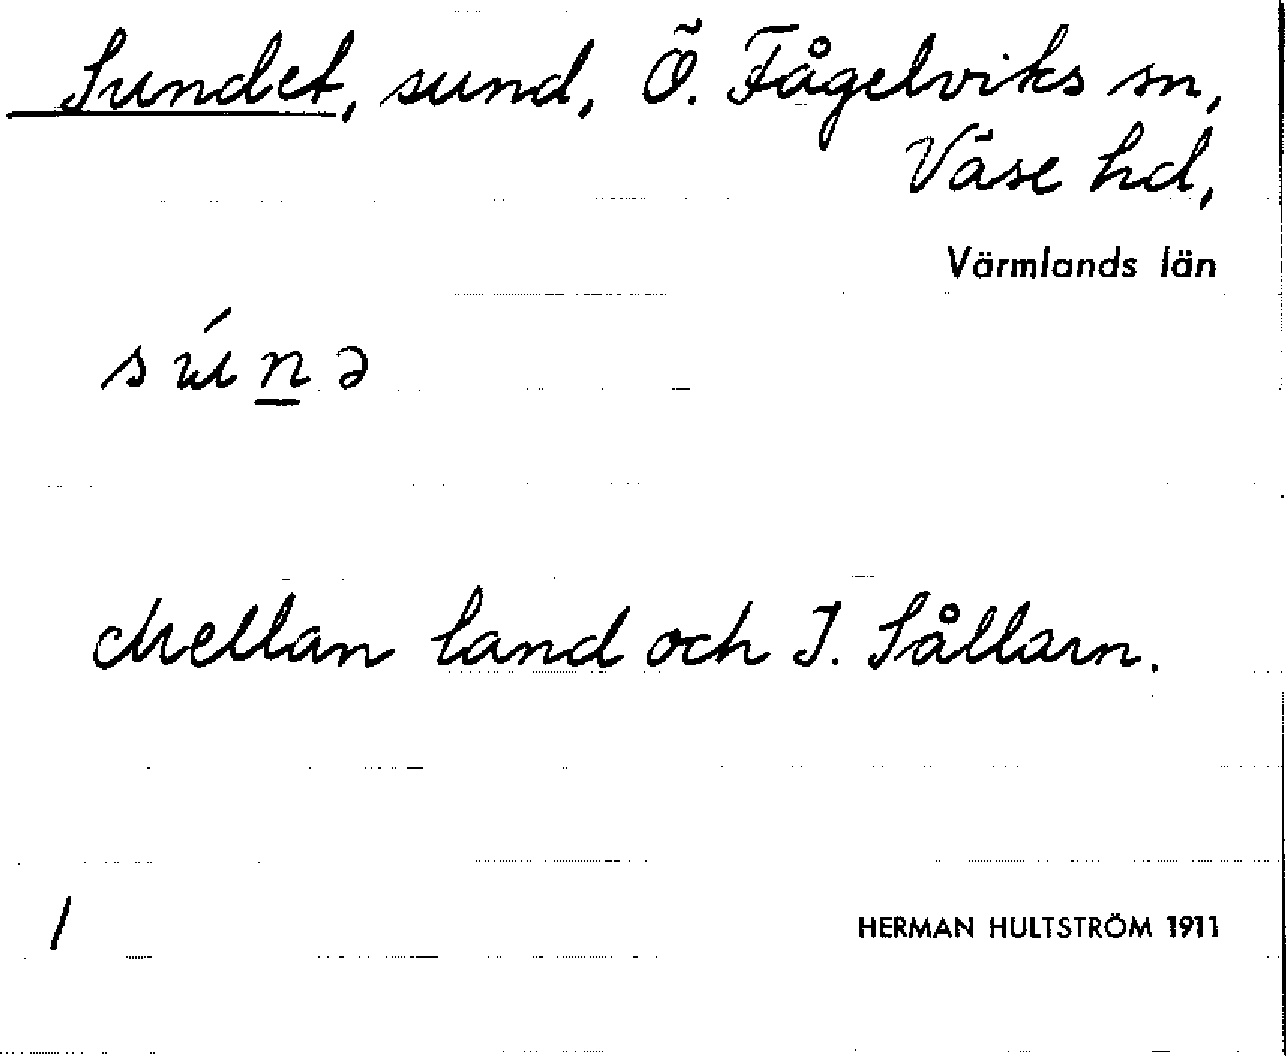 Sundet, sund, Ö. Fågelviks sn,
Väse hd,
Värmlands län
súnə
Mellan land och I. Sållarn.
/
HERMAN HULTSTRÖM 1911